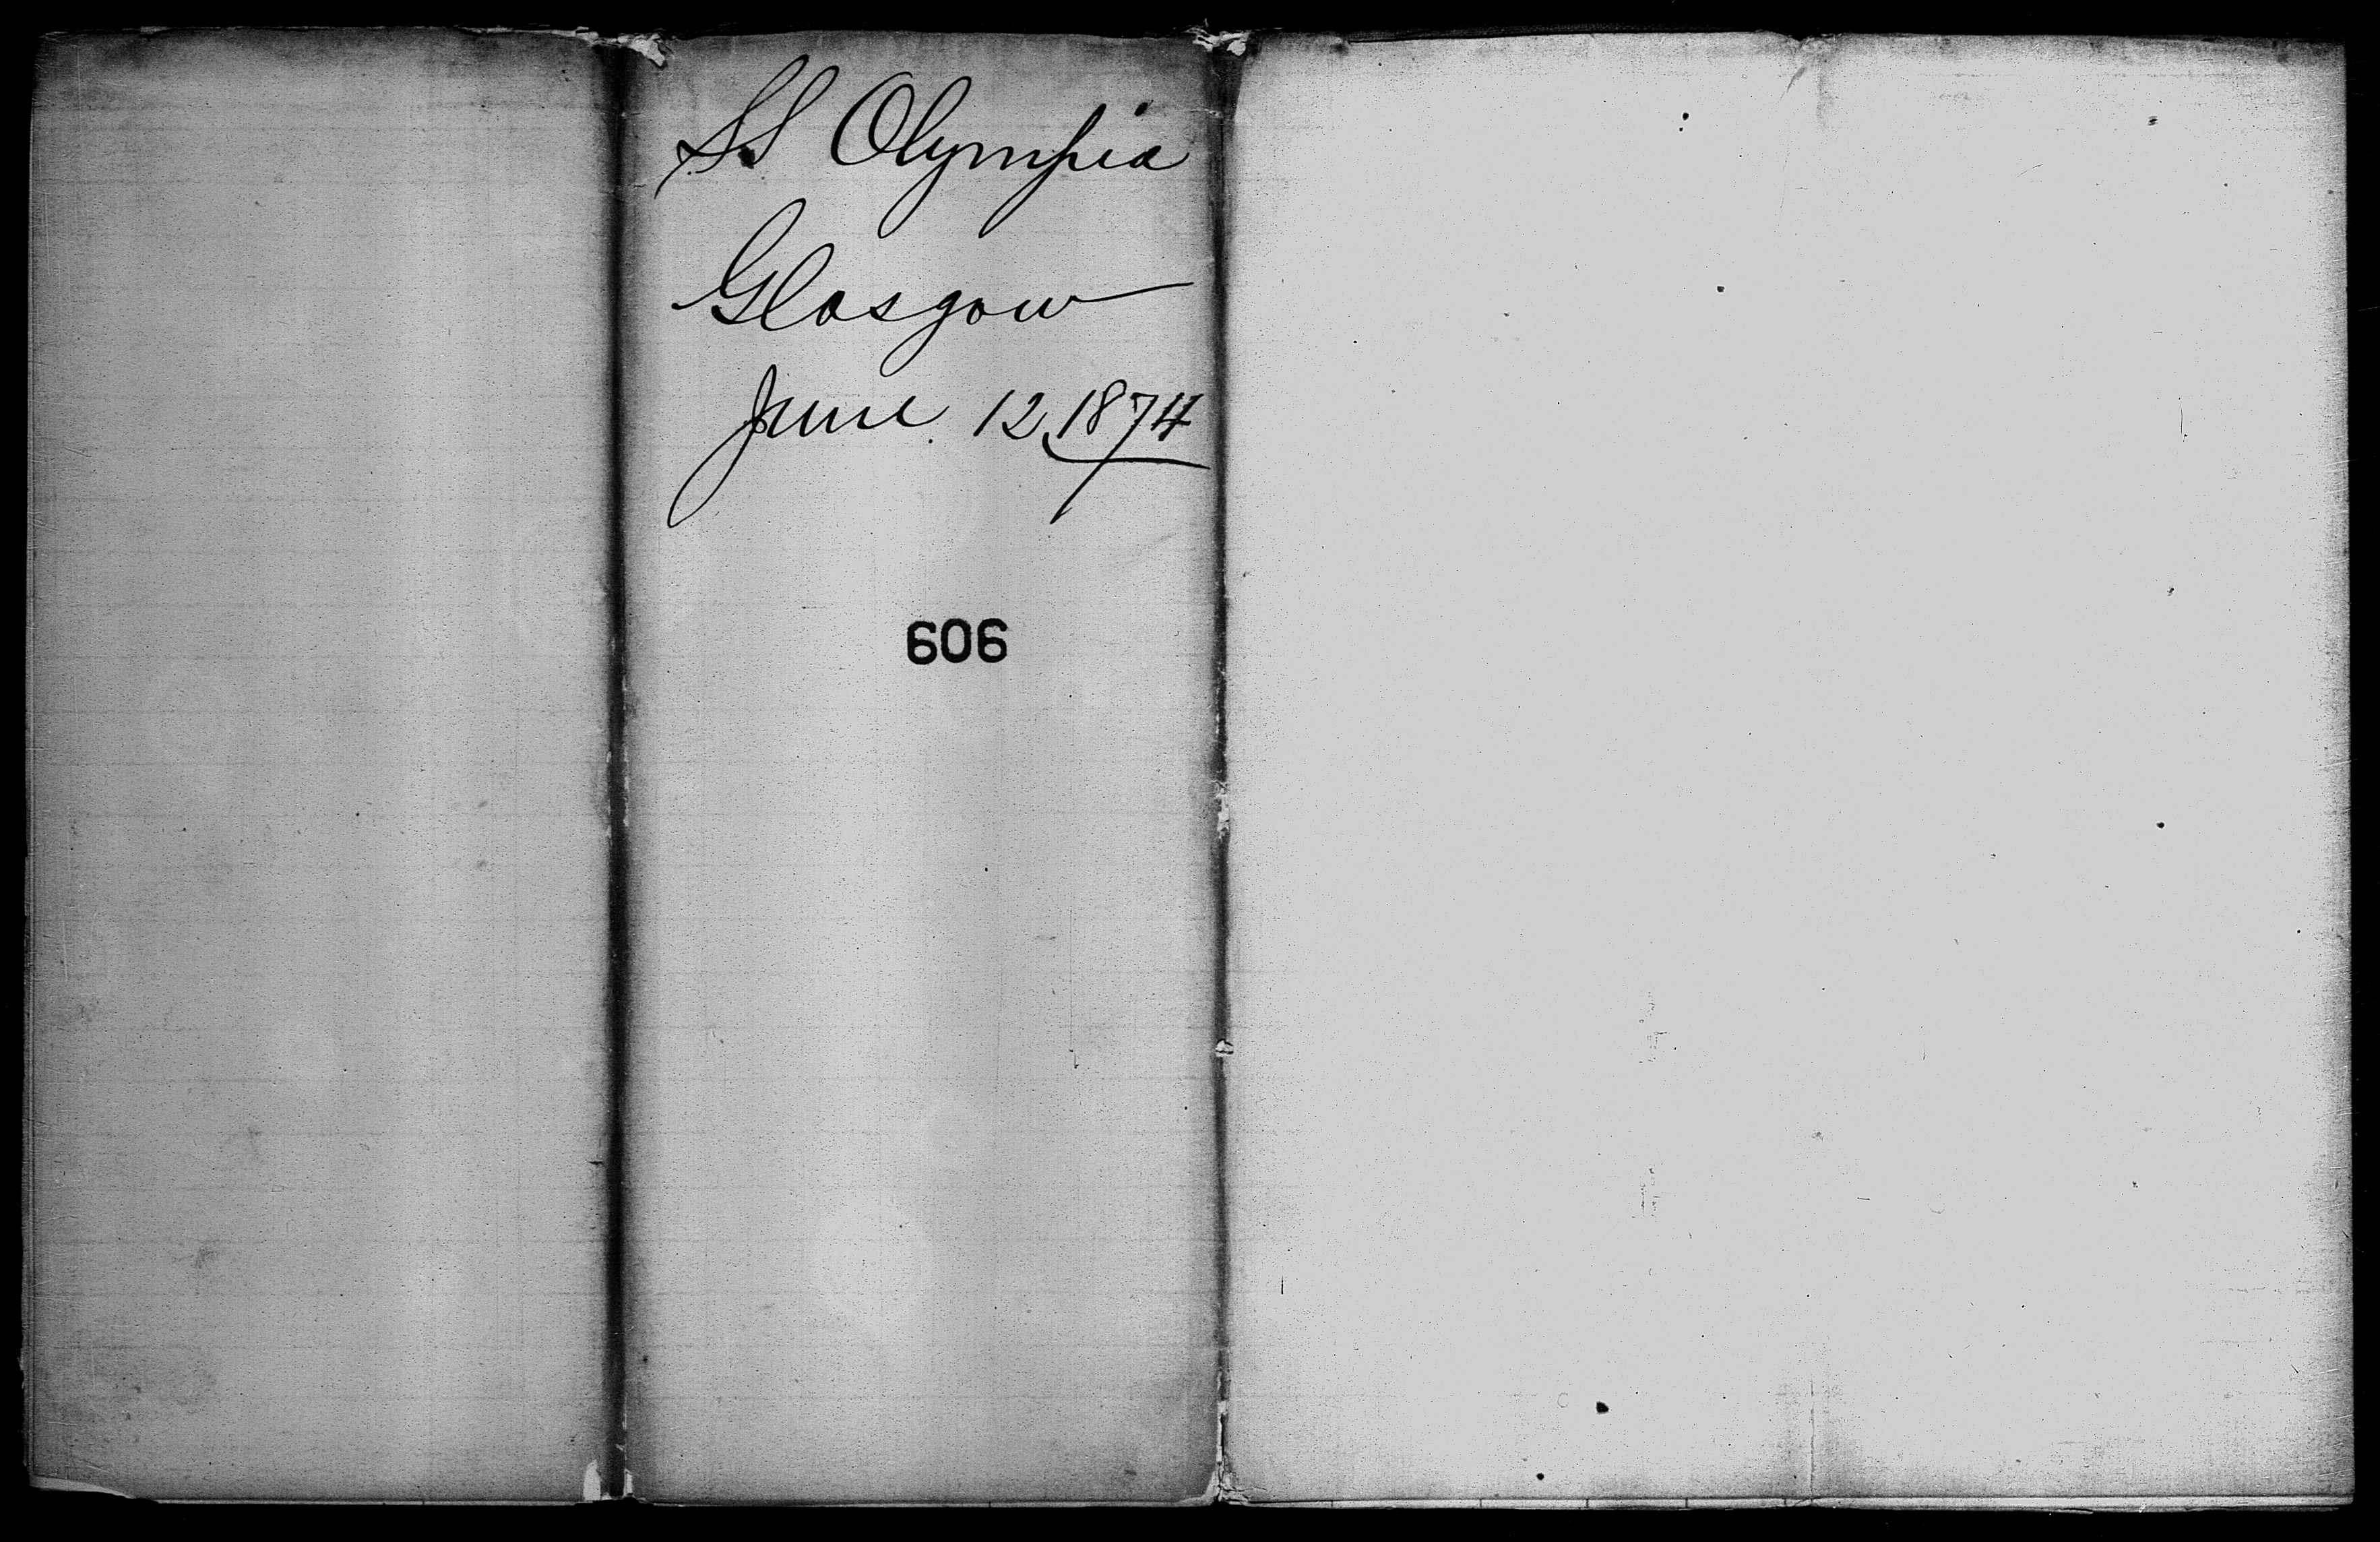 SS Olympia
Glasgow
June 12, 1874
606